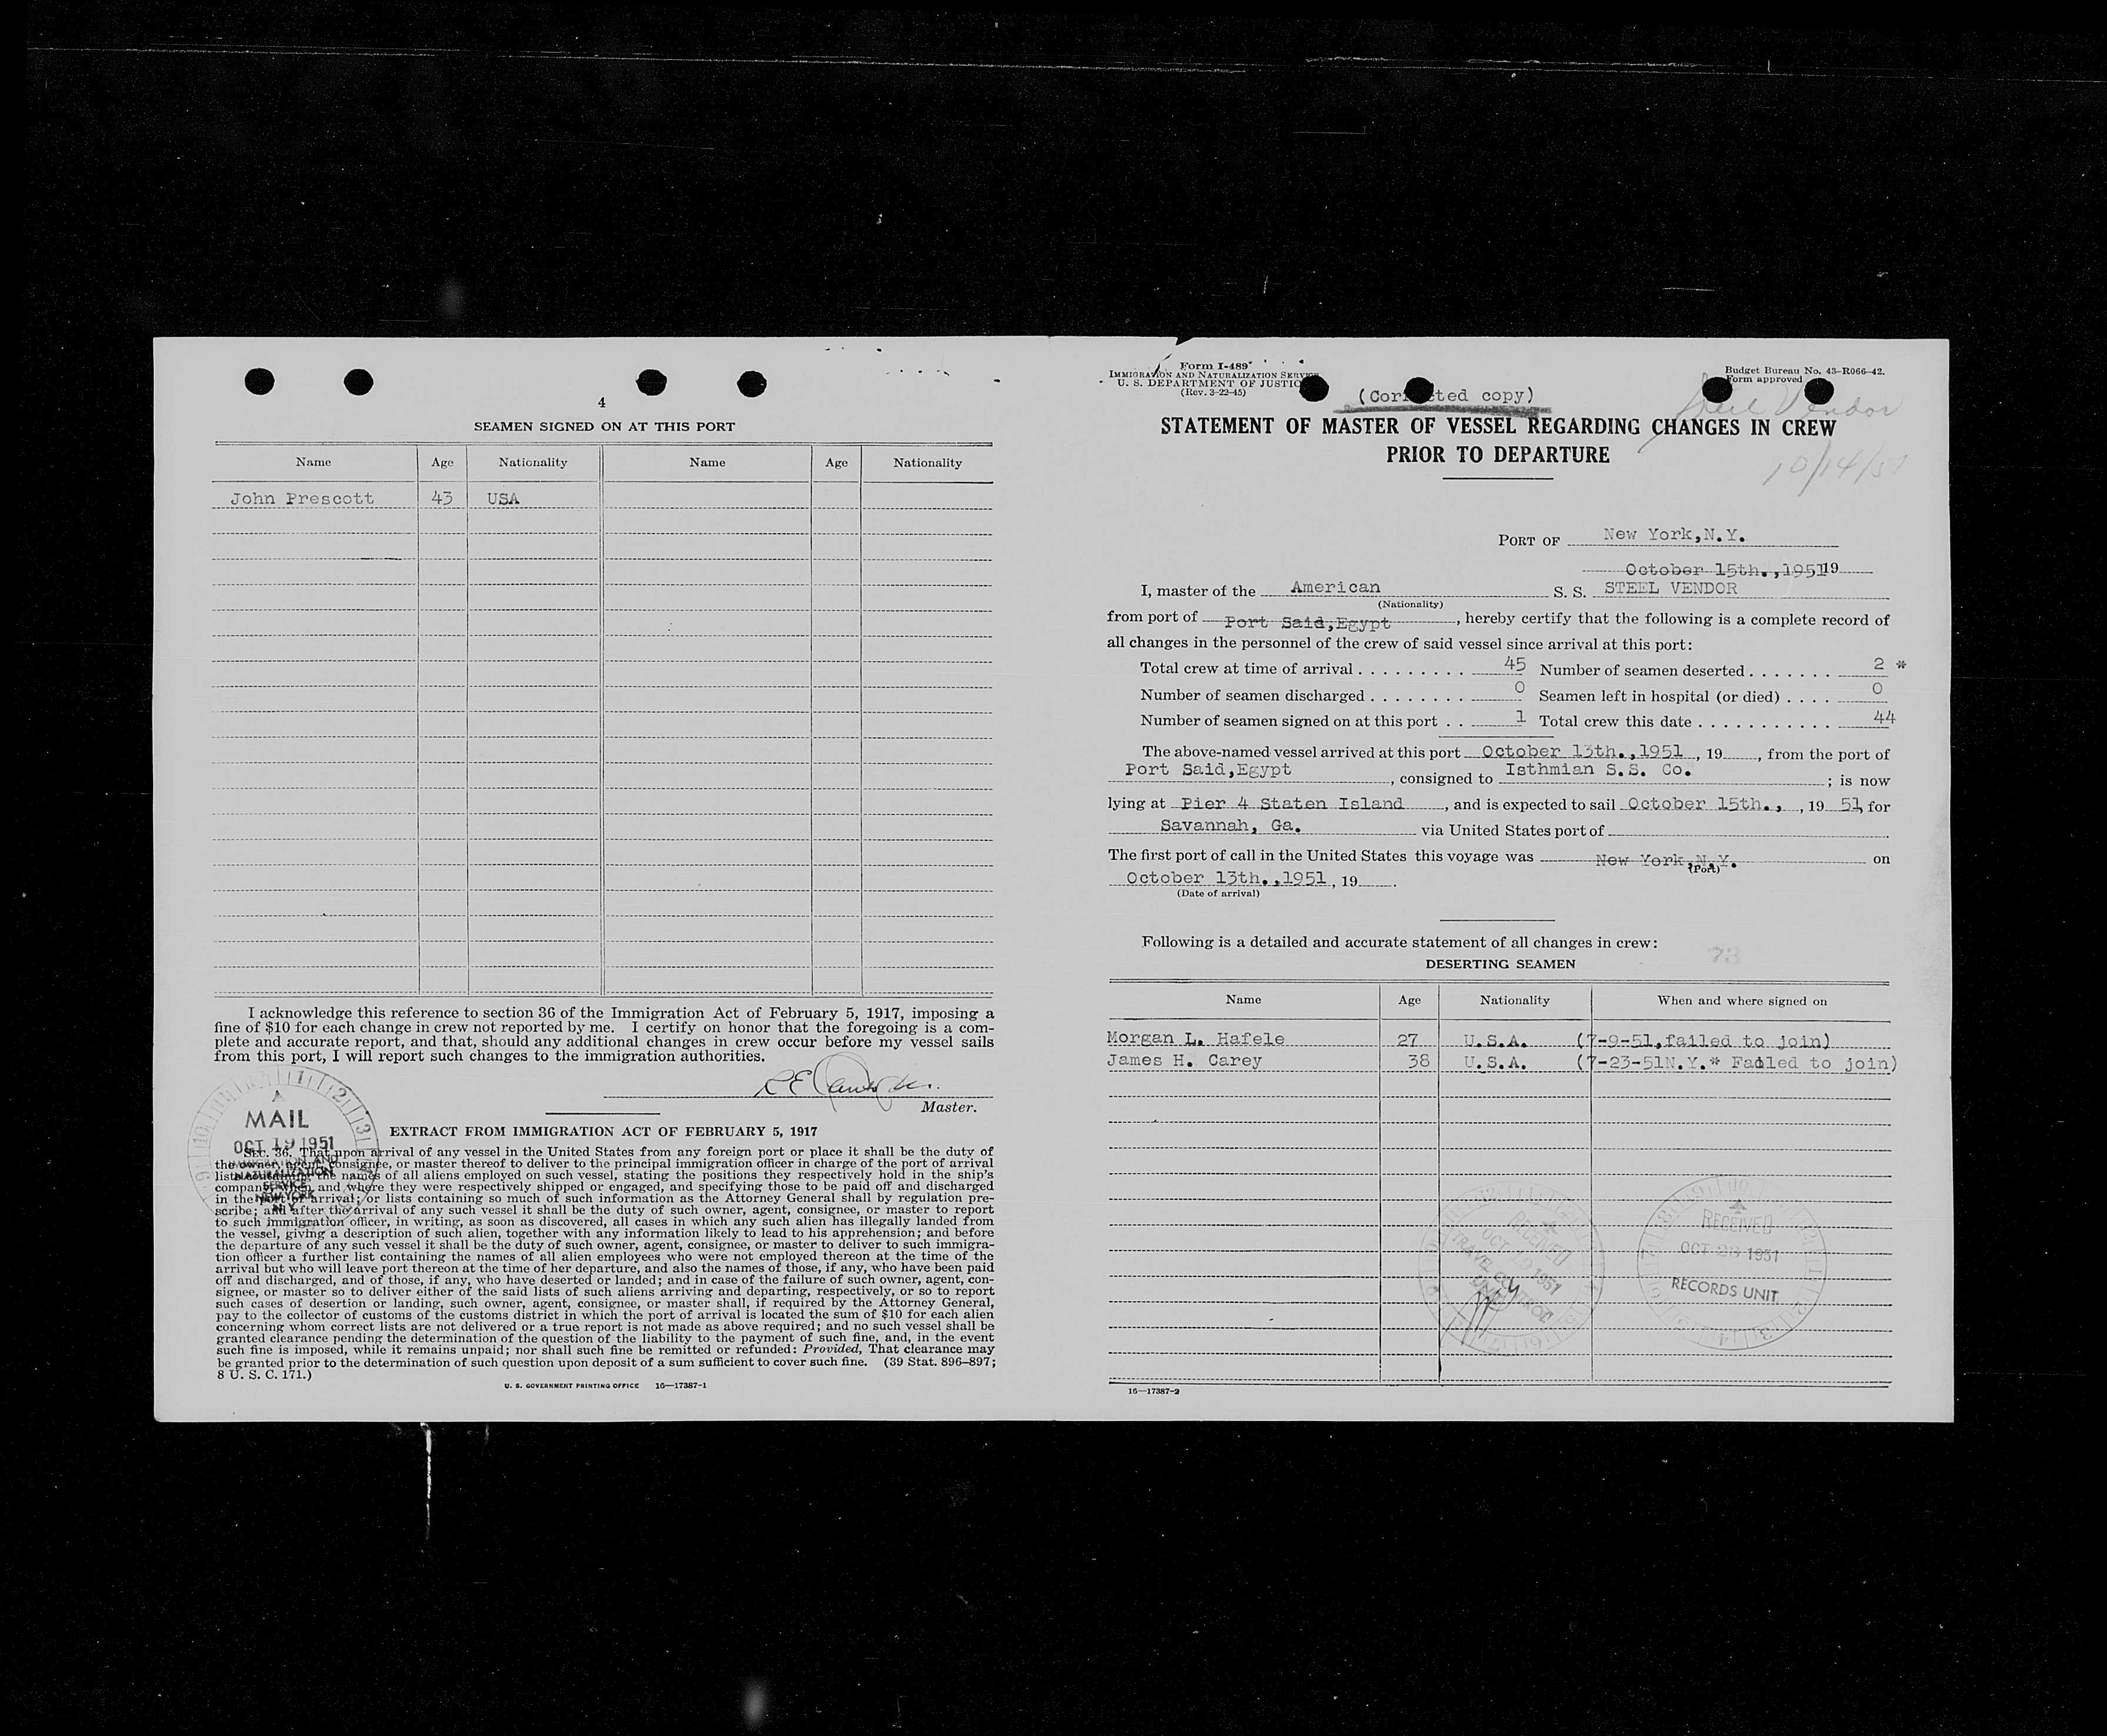 4
SEAMEN SIGNED ON AT THIS PORT
Name Age Nationality Name Age Nationality
John Prescott 43 USA
I acknowledge this reference to section 36 of the Immigration Act of February 5, 1917, imposing a
fine of $10 for each change in crew not reported by me. I certify on honor that the foregoing is a com-
plete and accurate report, and that, should any additional changes in crew occur before my vessel sails
from this port, I will report such changes to the immigration authorities.
Master.
MAIL
OCT 19 1951
IMMIGRATION AND
NATURALIZATION
SERVICE
NEW YORK
N.Y.
EXTRACT FROM IMMIGRATION ACT OF FEBRUARY 5, 1917
SEC. 36. That upon arrival of any vessel in the United States from any foreign port or place it shall be the duty of
the owner, agent, consignee, or master thereof to deliver to the principal immigration officer in charge of the port of arrival
lists containing the names of all aliens employed on such vessel, stating the positions they respectively hold in the ship's
company, when and where they were respectively shipped or engaged, and specifying those to be paid off and discharged
in the port of arrival; or lists containing so much of such information as the Attorney General shall by regulation pre-
scribe; and after the arrival of any such vessel it shall be the duty of such owner, agent, consignee, or master to report
to such immigration officer, in writing, as soon as discovered, all cases in which any such alien has illegally landed from
the vessel, giving a description of such alien, together with any information likely to lead to his apprehension; and before
the departure of any such vessel it shall be the duty of such owner, agent, consignee, or master to deliver to such immigra-
tion officer a further list containing the names of all alien employees who were not employed thereon at the time of the
arrival but who will leave port thereon at the time of her departure, and also the names of those, if any, who have been paid
off and discharged, and of those, if any, who have deserted or landed; and in case of the failure of such owner, agent, con-
signee, or master so to deliver either of the said lists of such aliens arriving and departing, respectively, or so to report
such cases of desertion or landing, such owner, agent, consignee, or master shall, if required by the Attorney General,
pay to the collector of customs of the customs district in which the port of arrival is located the sum of $10 for each alien
concerning whom correct lists are not delivered or a true report is not made as above required; and no such vessel shall be
granted clearance pending the determination of the question of the liability to the payment of such fine, and, in the event
such fine is imposed, while it remains unpaid; nor shall such fine be remitted or refunded: Provided, That clearance may
be granted prior to the determination of such question upon deposit of a sum sufficient to cover such fine. (39 Stat. 896–897;
8 U. S. C. 171.)
U. S. GOVERNMENT PRINTING OFFICE 16—17387-1
Form I-489
IMMIGRATION AND NATURALIZATION SERVICE
U. S. DEPARTMENT OF JUSTICE
(Rev. 3-22-45)
Budget Bureau No. 43-R066-42.
Form approved
(Corrected copy)
Steel Vendor
10/14/51
STATEMENT OF MASTER OF VESSEL REGARDING CHANGES IN CREW
PRIOR TO DEPARTURE
PORT OF New York,N.Y.
October 15th.,1951 19
I, master of the American S. S. STEEL VENDOR
(Nationality)
from port of Port Said,Egypt, hereby certify that the following is a complete record of
all changes in the personnel of the crew of said vessel since arrival at this port:
Total crew at time of arrival . . . . . . . . . 45 Number of seamen deserted . . . . . . . 2 *
Number of seamen discharged . . . . . . . . 0 Seamen left in hospital (or died) . . . . 0
Number of seamen signed on at this port . . 1 Total crew this date . . . . . . . . . . . 44
The above-named vessel arrived at this port October 13th.,1951, 19, from the port of
Port Said,Egypt, consigned to Isthmian S.S. Co.; is now
lying at Pier 4 Staten Island, and is expected to sail October 15th., , 19 51, for
Savannah, Ga. via United States port of
The first port of call in the United States this voyage was New York,N.Y. on
(Port)
October 13th.,1951, 19.
(Date of arrival)
Following is a detailed and accurate statement of all changes in crew:
73
DESERTING SEAMEN
Name Age Nationality When and where signed on
Morgan L. Hafele 27 U.S.A. (7-9-51,failed to join)
James H. Carey 38 U.S.A. (7-23-51N.Y.* Failed to join)
RECEIVED
OCT 19 1951
TRAVEL CONTROL
UNIT
RECEIVED
OCT 23 1951
RECORDS UNIT
16—17387-2